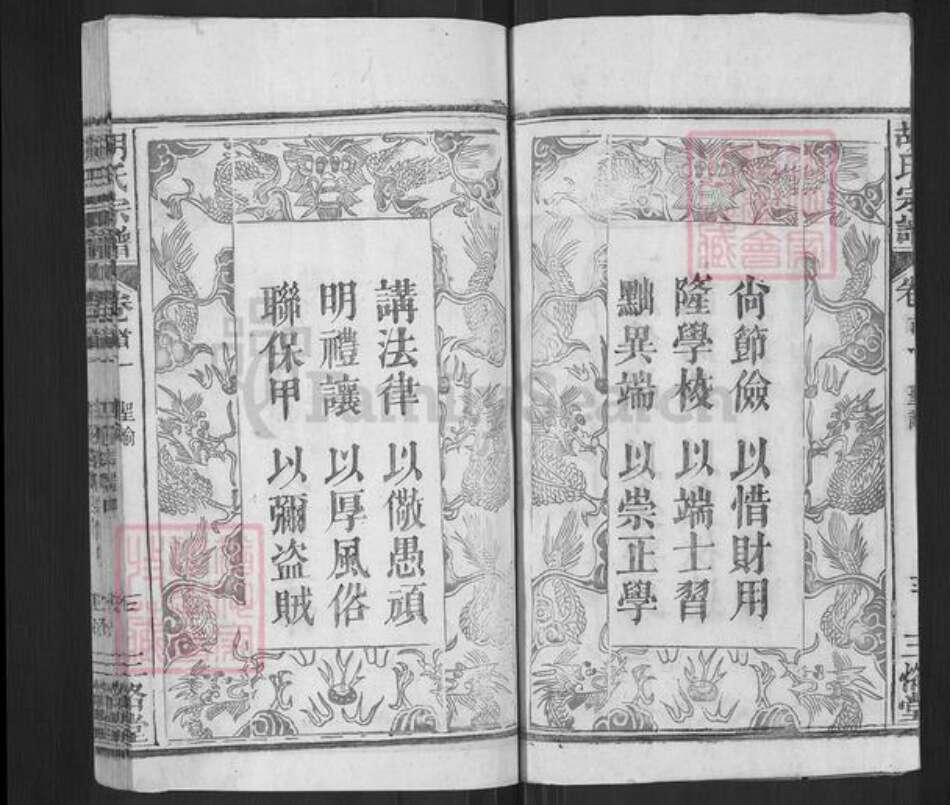 胡氏宗譜
尙節儉 以惜財用
隆學校 以端士習
黜異端 以崇正學
講法律 以儆愚頑
明禮讓 以厚風俗
聯保甲 以彌盜賊
胡氏宗譜
卷首一
聖諭
三
FamilySearch